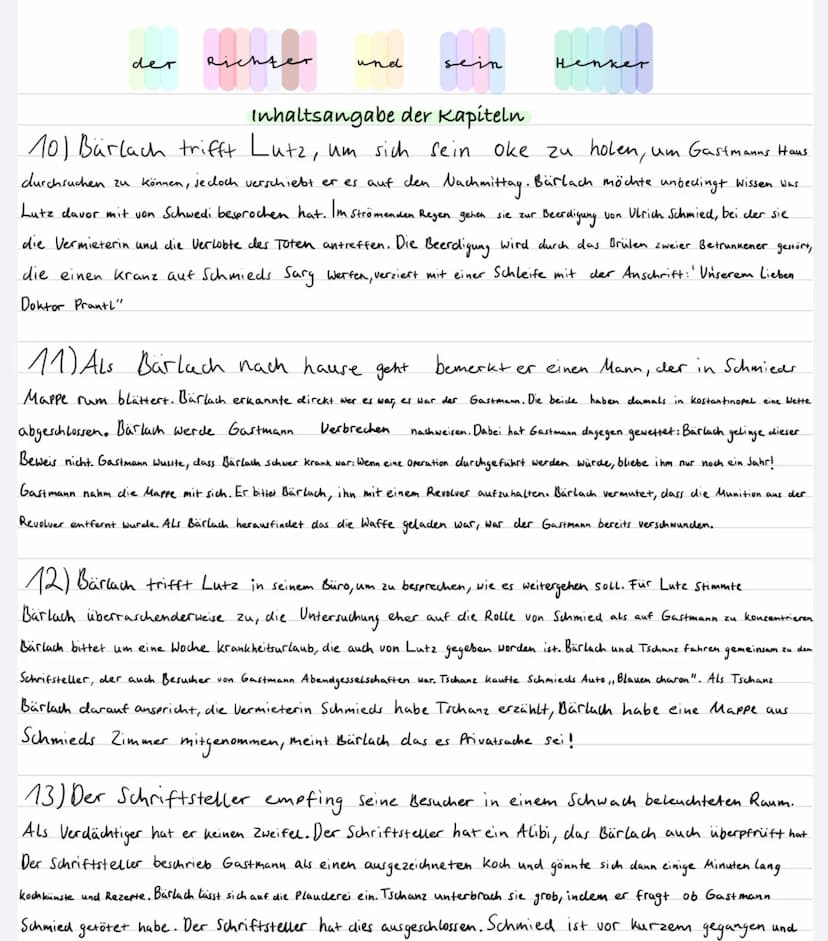 der Richter und sein Henker
Inhaltsangabe der Kapiteln
10) Bärlach trifft Lutz, um sich sein oke zu holen, um Gastmanns Haus
durchsuchen zu können, jedoch verschiebt er es auf den Nachmittag. Bärlach möchte unbedingt wissen was
Lutz davor mit von Schwedi besprochen hat. Im Strömenden Regen gehen sie zur Beerdigung von Ulrich Schmied, bei der sie
die Vermieterin und die Verlobte des Toten antreffen. Die Beerdigung wird durch das Brülen zweier Betrunkener gestört,
die einen Kranz auf Schmieds Sarg werfen, verziert mit einer Schleife mit der Anschrift: 'Unserem Lieben
Doktor Prantl"
11) Als Bärlach nach hause geht bemerkt er einen Mann, der in Schmieds
Mappe rum blättert. Bärlach erkannte direkt wer es war, es war der Gastmann. Die beide haben damals in Kostantinopel eine Wette
abgeschlossen. Bärlach werde Gastmann Verbrechen nachweisen. Dabei hat Gastmann dagegen gewettet: Bärlach gelinge dieser
Beweis nicht. Gastmann wusste, dass Bärlach schwer krank war: Wenn eine Operation durchgeführt werden würde, bliebe ihm nur noch ein Jahr!
Gastmann nahm die Mappe mit sich. Er bittet Bärlach, ihn mit einem Revolver aufzuhalten. Bärlach vermutet, dass die Munition aus der
Revolver entfernt wurde. Als Bärlach herausfindet das die Waffe geladen war, war der Gastmann bereits verschwunden.
12) Bärlach trifft Lutz in seinem Büro, um zu besprechen, wie es weitergehen soll. Für Lutz stimmte
Bärlach überraschenderweise zu, die Untersuchung eher auf die Rolle von Schmied als auf Gastmann zu konzentrieren
Bärlach bittet um eine Woche krankheitsurlaub, die auch von Lutz gegeben worden ist. Bärlach und Tschanz fahren gemeinsam zu dem
Schrifsteller, der auch Besucher von Gastmann Abendgesselschaften war. Tschanz kaufte Schmieds Auto „Blauen charon". Als Tschanz
Bärlach darauf anspricht, die Vermieterin Schmieds habe Tschanz erzählt, Bärlach habe eine Mappe aus
Schmieds Zimmer mitgenommen, meint Bärlach das es Privatsache sei!
13) Der Schriftsteller empfing seine Besucher in einem Schwach beleuchteten Raum.
Als Verdächtiger hat er keinen Zweifel. Der Schriftsteller hat ein Alibi, das Bärlach auch überpfrüft hat
Der Schriftsteller beschrieb Gastmann als einen ausgezeichneten Koch und gönnte sich dann einige Minuten lang
kochkünste und Rezepte. Bärlach lässt sich auf die Plauderei ein. Tschanz unterbrach sie grob, indem er fragt ob Gastmann
Schmied getötet habe. Der Schriftsteller hat dies ausgeschlossen. Schmied ist vor kurzem gegangen und